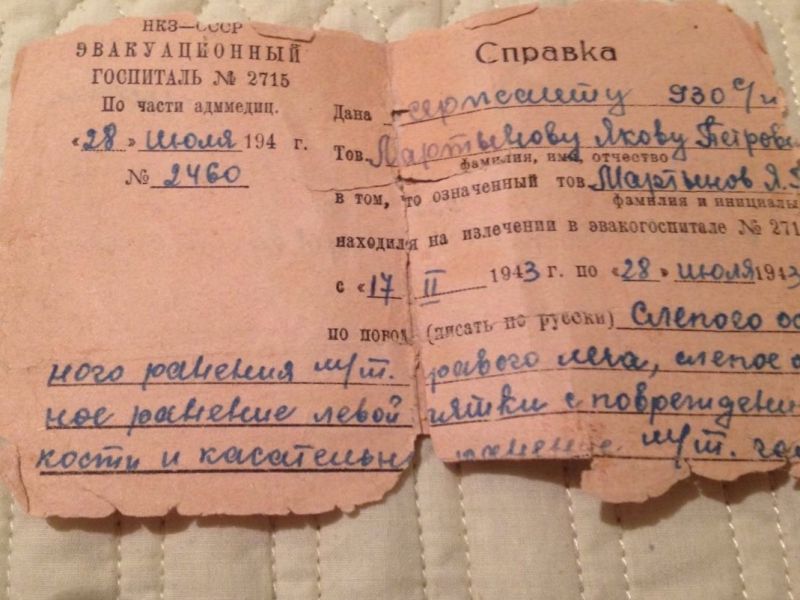 НКЗ—СССР
ЭВАКУАЦИОННЫЙ
ГОСПИТАЛЬ № 2715
По части адммедиц.
«28» июля 194 г.
№ 2460
Справка
Дана сержанту 930 с/п
Тов. Мартынову Якову Петров
фамилия, имя, отчество
в том, что означенный тов. Мартынов Я.
фамилия и инициалы
находился на излечении в эвакогоспитале № 271
с «17 II 1943 г. по «28» июля 1943
по повод (писать по русски) Слепого ос
ного ранения м/т. равого леча, слепое о
ное ранение левой пятки с повреждени
кости и касательн ранение м/т. го